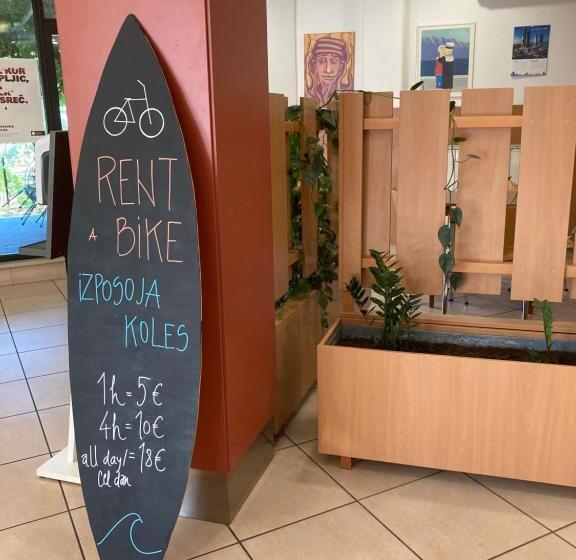 RENT
A BIKE
iZPOSOJA
KOLES
1h=5€
4h=10€
all day/=18€
cel dan
KUR
PLJIC,
SREČ.